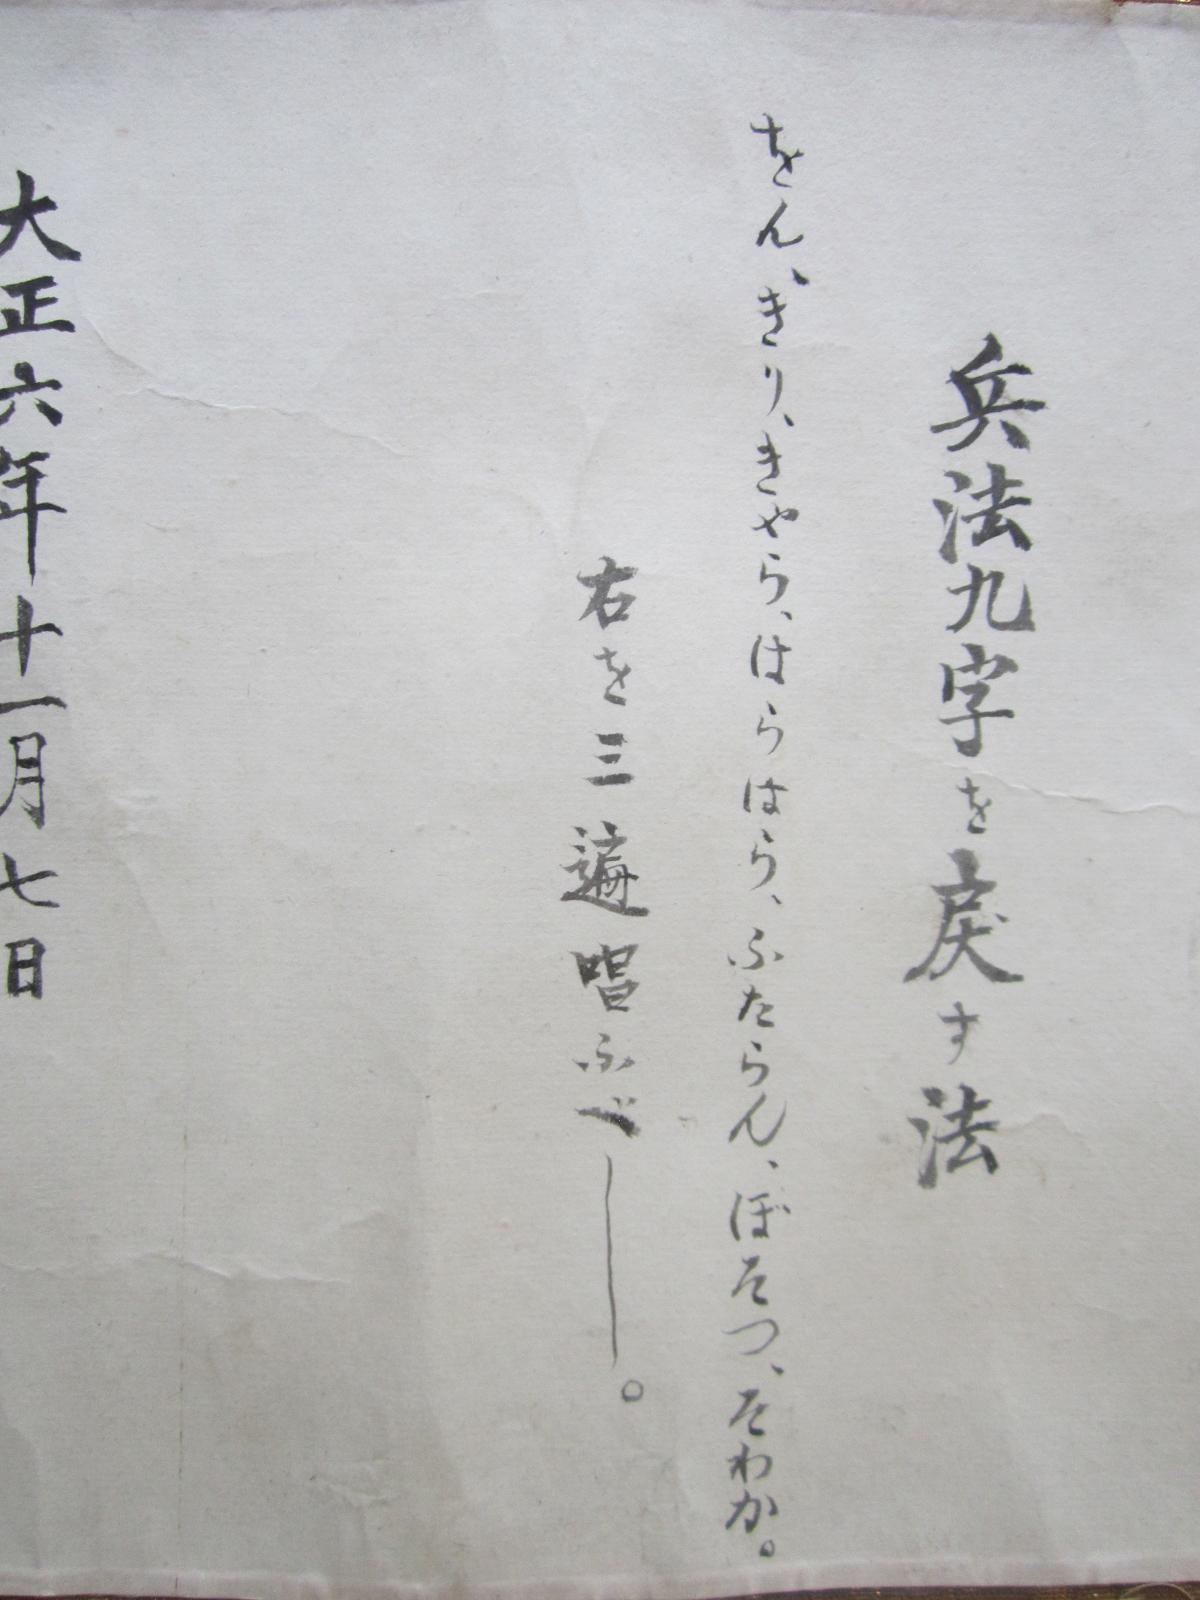 兵法九字を戻す法
をん、きり、きやら、はらはら、ふたらん、ぼそつ、そわか。
右を三遍唱ふべし。
大正六年十一月七日